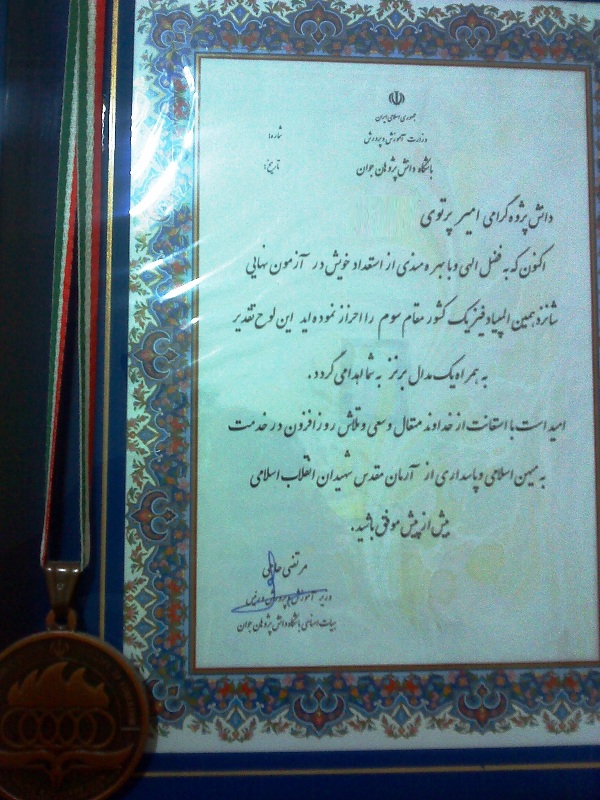 جمهوری اسلامی ایران
وزارت آموزش و پرورش
شماره:
باشگاه دانش پژوهان جوان
تاریخ:
دانش پژوه گرامی امیر پرتوی
اکنون که به فضل الهی و با بهره مندی از استعداد خویش در آزمون نهایی
شانزدهمین المپیاد فیزیک کشور مقام سوم را احراز نموده اید این لوح تقدیر
به همراه یک مدال برنز به شما اهدا می گردد.
امید است با استعانت از خداوند متعال و سعی و تلاش روز افزون در خدمت
به میهن اسلامی و پاسداری از آرمان مقدس شهیدان انقلاب اسلامی
بیش از پیش موفق باشید.
مرتضی حاجی
وزیر آموزش و پرورش و رئیس
هیات امنای باشگاه دانش پژوهان جوان